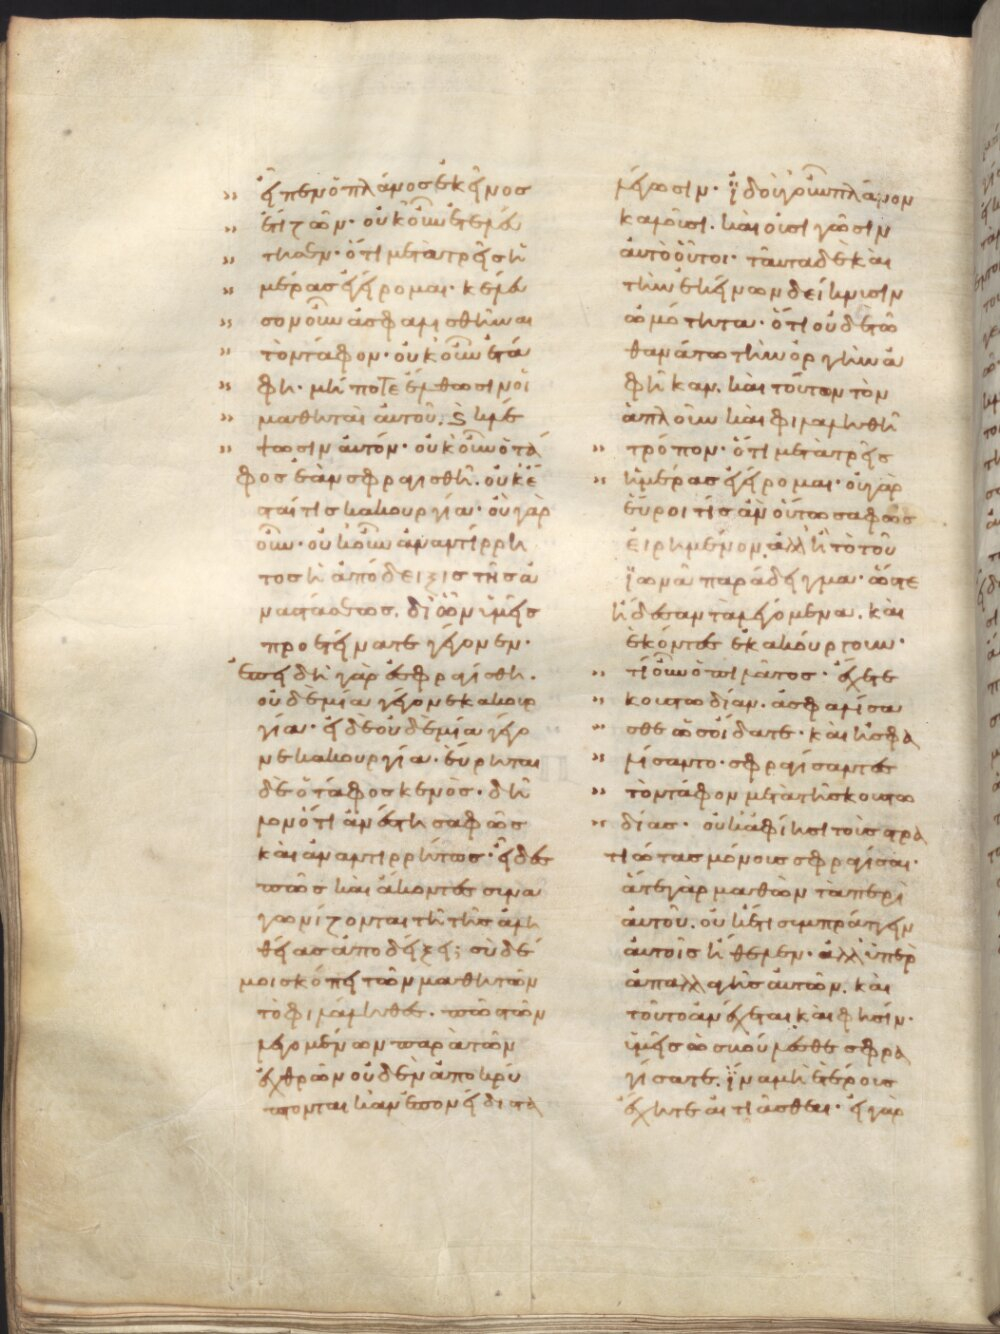 » εἶπεν ὁ πλάνος ἐκεῖνος
» ἔτι ζῶν· οὐκοῦν ἐτελεύ
» τησεν· ὅτι μετὰ τρεῖς ἡ
» μέρας ἐγείρομαι· κέλευ
» σον οὖν ἀσφαλισθῆναι
» τὸν τάφον· οὐκοῦν ἐτά
» φη· μήποτε ἔλθωσιν οἱ
» μαθηταὶ αὐτοῦ, καὶ κλέ
» ψωσιν αὐτόν· οὐκοῦν ὁ τά
φος ἐὰν σφραγισθῆ. οὐκ ἔ
σται τις κακουργία· οὐ γὰρ
οὖν· οὐκοῦν ἀναντίρρη
τος ἡ ἀπόδειξις τῆς ἀ
ναστάσεως, δι ὧν ὑμεῖς
προετείνατε γέγονεν·
ἐπειδὴ γὰρ ἐσφραγίσθη.
οὐδεμία γέγονε κακουρ
γία· εἰ δὲ οὐδεμία γέγο
νε κακουργία. εὕρηται
δὲ ὁ τάφος κενός· δῆ
λον ὅτι ἀνέστη σαφῶς
καὶ ἀναντιρρήτως· εἶδες
πῶς καὶ ἄκοντες συνα
γωνίζονται τῆ τῆς ἀλη
θείας ἀποδείξει; σὺ δέ
μοι σκόπει τῶν μαθητῶν
τὸ φιλάληθες. πῶς τῶν
λεγομένων παρὰ τῶν
ἐχθρῶν οὐδὲν ἀποκρύ
πτονται κἂν ἐπονείδιστα
λέγωσιν· ἰδοὺ γοῦν πλάνον
καλοῦσι. καὶ οὐ σιγῶσιν
αὐτὸ οὗτοι· ταῦτα δὲ καὶ
τὴν ἐκείνων δείκνυσιν
ὠμότητα· ὅτι οὐδὲ τῶ
θανάτω τὴν ὀργὴν ἀ
φῆκαν. καὶ τούτων τὸν
ἄπλουν καὶ φιλαλήθη
» τρόπον· ὅτι μετὰ τρεῖς
» ἡμέρας ἐγείρομαι· οὐ γὰρ
εὕροι τίς ἂν οὕτω σαφῶς
εἰρημένον, ἀλλ ἢ τὸ τοῦ
ἰωνᾶ παράδειγμα· ὥστε
ἤδεσαν τὰ λεγόμενα. καὶ
ἑκόντες ἐκακούργουν·
» τί οὖν ὁ πιλᾶτος· ἔχετε
» κουστωδίαν. ἀσφαλίσα
» σθε ὡς οἴδατε· καὶ ἠσφα
» λίσαντο· σφραγίσαντες
» τὸν τάφον μετὰ τῆς κουστω
» δίας· οὐκ ἀφίησι τοὺς στρα
τιώτας μόνους σφραγίσαι·
ἅτε γὰρ μαθὼν τὰ περὶ
αὐτοῦ. οὐκέτι συμπράττειν
αὐτοῖς ἤθελεν· ἀλλ ὑπὲρ
ἀπαλλαγῆς αὐτῶν, καὶ
τοῦτο ἀνέχεται καὶ φησίν·
ὑμεῖς ὡς βούλεσθε σφρα
γίσατε, ἵνα μὴ ἑτέρους
ἔχητε αἰτιᾶσθαι· εἰ γὰρ